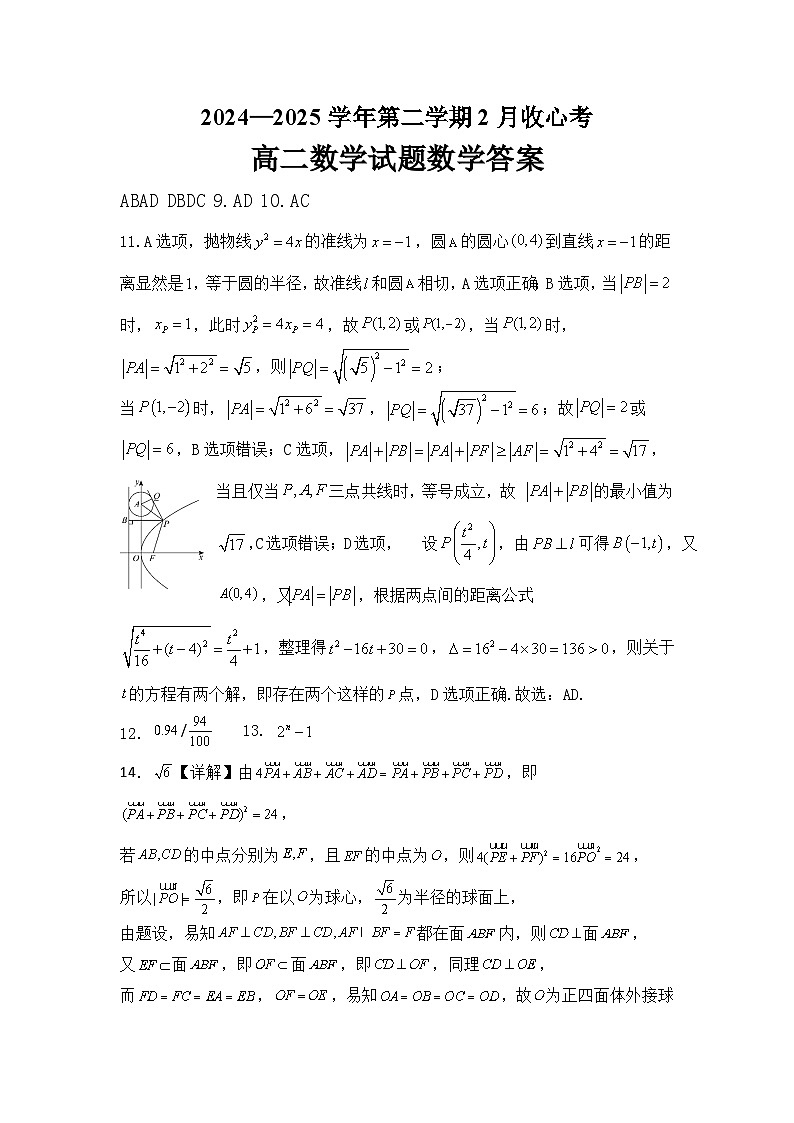 2024—2025 学年第二学期 2 月收心考
高二数学试题数学答案
ABAD DBDC 9.AD 10.AC
11.A 选项，抛物线 y² = 4x 的准线为 x = −1，圆 A 的圆心 (0,4) 到直线 x = −1 的距
离显然是 1，等于圆的半径，故准线 l 和圆 A 相切，A 选项正确；B 选项，当 |PB| = 2
时，x_P = 1，此时 y_P² = 4x_P = 4，故 P(1,2) 或 P(1,−2)，当 P(1,2) 时，
|PA| = √(1² + 2²) = √5，则 |PQ| = √((√5)² − 1²) = 2；
当 P(1,−2) 时，|PA| = √(1² + 6²) = √37，|PQ| = √((√37)² − 1²) = 6；故 |PQ| = 2 或
|PQ| = 6，B 选项错误；C 选项，|PA| + |PB| = |PA| + |PF| ≥ |AF| = √(1² + 4²) = √17，
y
A
Q
B
P
O
F
x
当且仅当 P, A, F 三点共线时，等号成立，故 |PA| + |PB| 的最小值为
√17，C 选项错误；D 选项， 设 P(t²/4, t)，由 PB ⊥ l 可得 B(−1,t)，又
A(0,4)，又 |PA| = |PB|，根据两点间的距离公式
√(t⁴/16 + (t − 4)²) = t²/4 + 1，整理得 t² − 16t + 30 = 0，Δ = 16² − 4×30 = 136 > 0，则关于
t 的方程有两个解，即存在两个这样的 P 点，D 选项正确.故选：AD.
12. 0.94 / 94/100 13. 2ⁿ − 1
14. √6【详解】由 4PA + AB + AC + AD = PA + PB + PC + PD，即
(PA + PB + PC + PD)² = 24，
若 AB,CD 的中点分别为 E,F，且 EF 的中点为 O，则 4(PE + PF)² = 16PO² = 24，
所以 |PO| = √6/2，即 P 在以 O 为球心，√6/2 为半径的球面上，
由题设，易知 AF ⊥ CD, BF ⊥ CD, AF I BF = F 都在面 ABF 内，则 CD ⊥ 面 ABF，
又 EF ⊂ 面 ABF，即 OF ⊂ 面 ABF，即 CD ⊥ OF，同理 CD ⊥ OE，
而 FD = FC = EA = EB，OF = OE，易知 OA = OB = OC = OD，故 O 为正四面体外接球